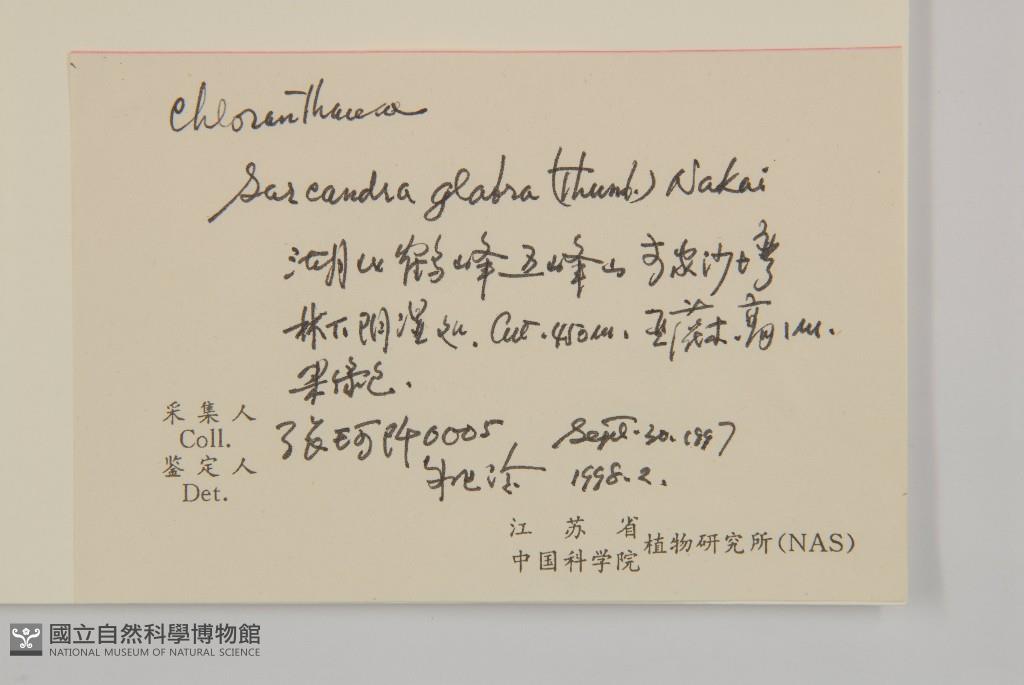 Chloranthaceae
Sarcandra glabra (Thunb.) Nakai
湖北鹤峰五峰山 沙
林下阴湿处. 450m. 亚灌木. 高1m.
果绿色.
采集人
Coll.
张 0005 Sept. 30. 1997
鉴定人
Det.
1998. 2.
江苏省
中国科学院 植物研究所(NAS)
國立自然科學博物館
NATIONAL MUSEUM OF NATURAL SCIENCE